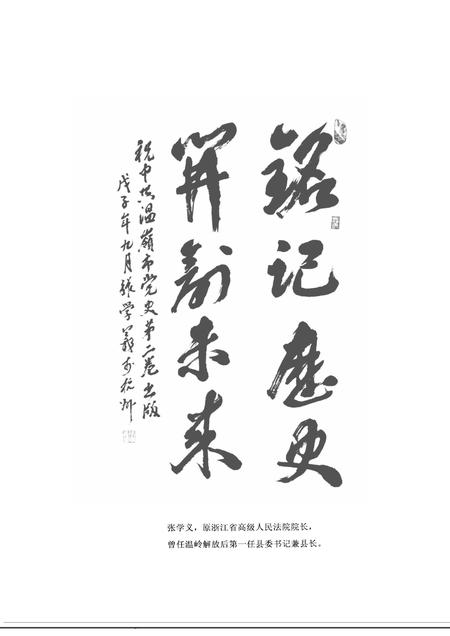 铭记歷史
開創未来
祝中共温嶺市党史第二卷出版
戊子年九月張学義于杭州
张学义，原浙江省高级人民法院院长，
曾任温岭解放后第一任县委书记兼县长。